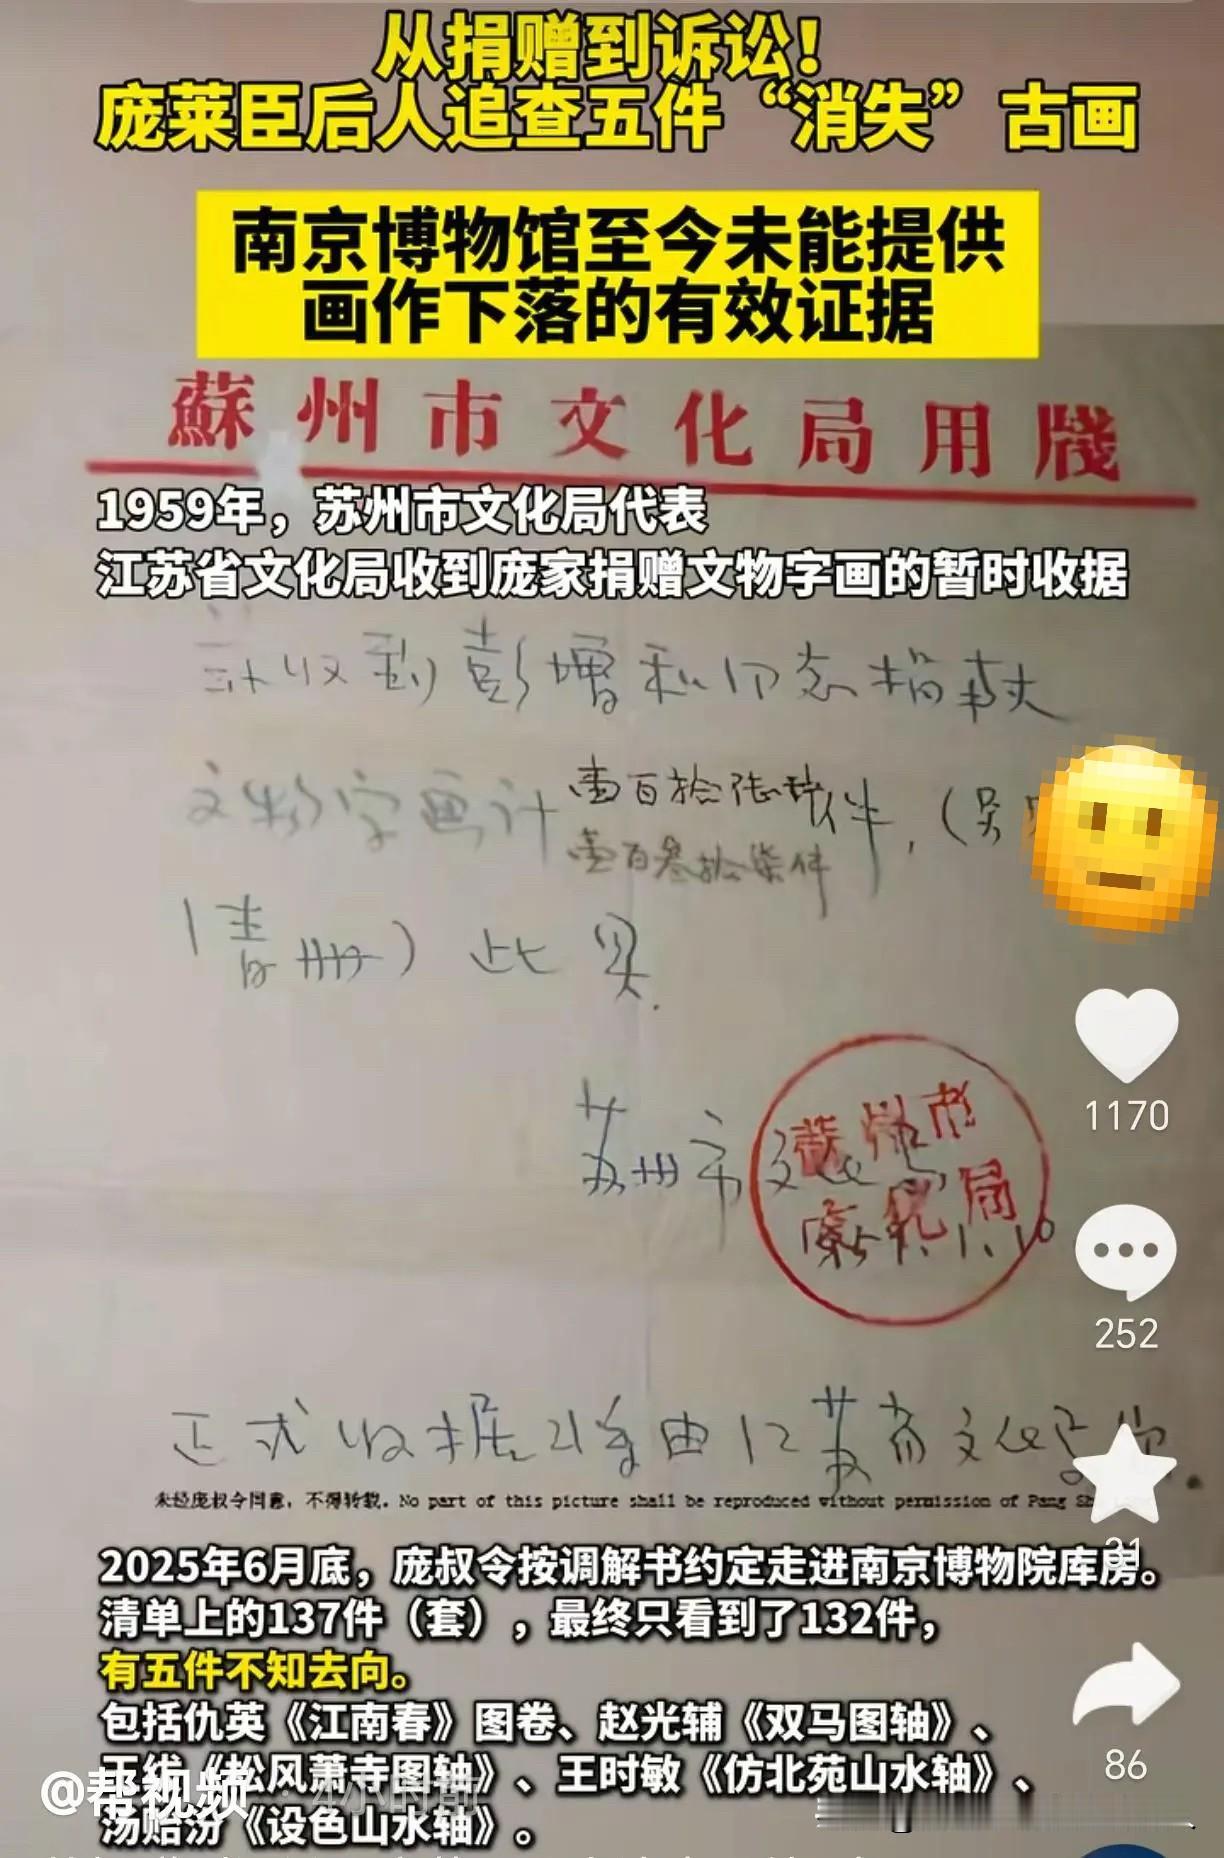 从捐赠到诉讼！
庞莱臣后人追查五件“消失”古画
南京博物馆至今未能提供
画作下落的有效证据
蘇州市文化局用牋
1959年，苏州市文化局代表
江苏省文化局收到庞家捐赠文物字画的暂时收据
收到彭增和同志捐献
文物字画计壹百拾件，(另
壹百叁拾柒件
清册)此具.
1170
苏州市文化局
蘇州市
文化局
252
正式收据将由江苏省文化局
未经庞叔令同意，不得转载。No part of this picture shall be reproduced without permission of Pang Sh
31
2025年6月底，庞叔令按调解书约定走进南京博物院库房。
清单上的137件（套），最终只看到了132件，
有五件不知去向。
包括仇英《江南春》图卷、赵光辅《双马图轴》、
王绂《松风萧寺图轴》、王时敏《仿北苑山水轴》、
86
@帮视频 · 4小时前
汤贻汾《设色山水轴》。